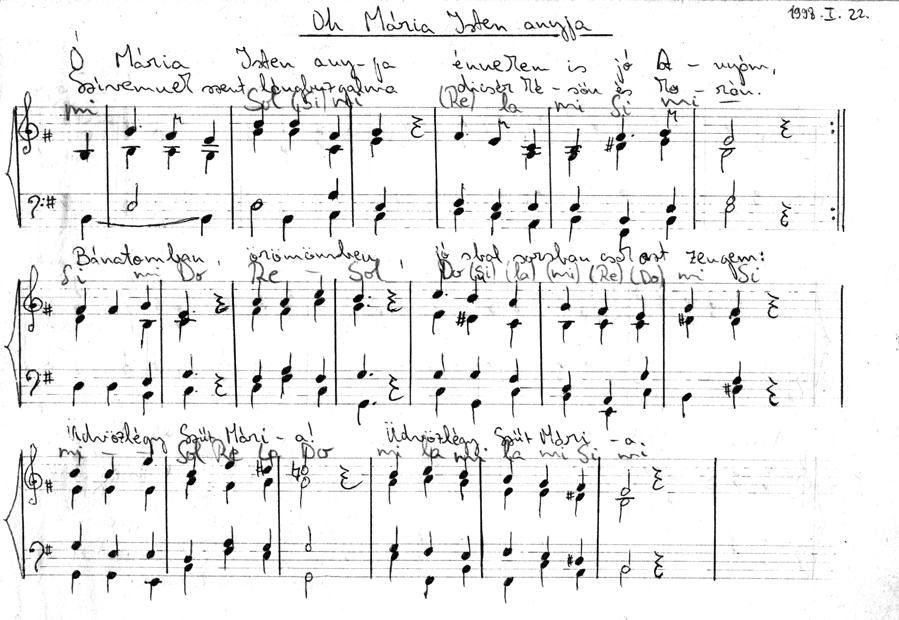 Oh Mária Isten anyja
1998. I. 22.
Ó Mária Isten any-ja énnekem is jó A-nyám,
Szívemnek szent lángbuzgalma dicsér ké-sőn és ko-rán.
mi Sol (Si) mi (Re) la mi Si mi
Bánatomban, örömömben, jó sbal sorban csak azt zengem:
Si mi Do Re - Sol Do (Si) (la) (mi) (Re) (Do) mi Si
Üdvözlégy Szűz Mári-a! Üdvözlégy Szűz Mári-a.
mi - - Sol Re La Do mi la mi la mi Si mi